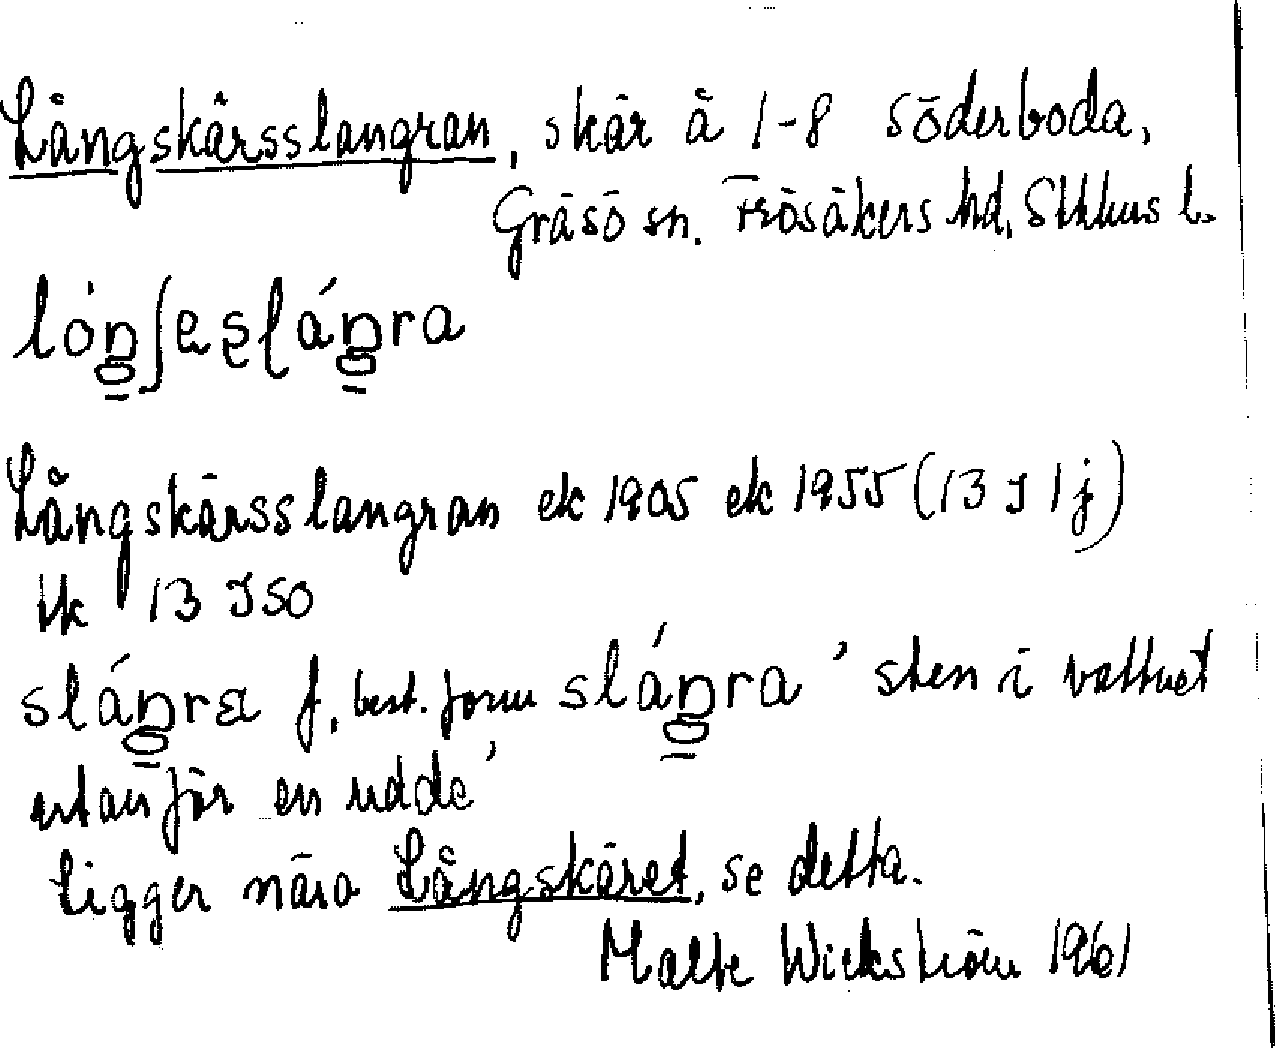 Långskärsslangran, skär å 1-8 Söderboda,
Gräsö sn. Frösåkers hd, Sthlms l.
lóŋʃɐʂɭáŋra
Långskärsslangran ek 1905 ek 1955 (13 I 1j)
tk 13 I SO
sláŋrɐ f, best. form sláŋra 'sten i vattnet
utanför en udde'
ligger nära Långskäret, se detta.
Malte Wickström 1961